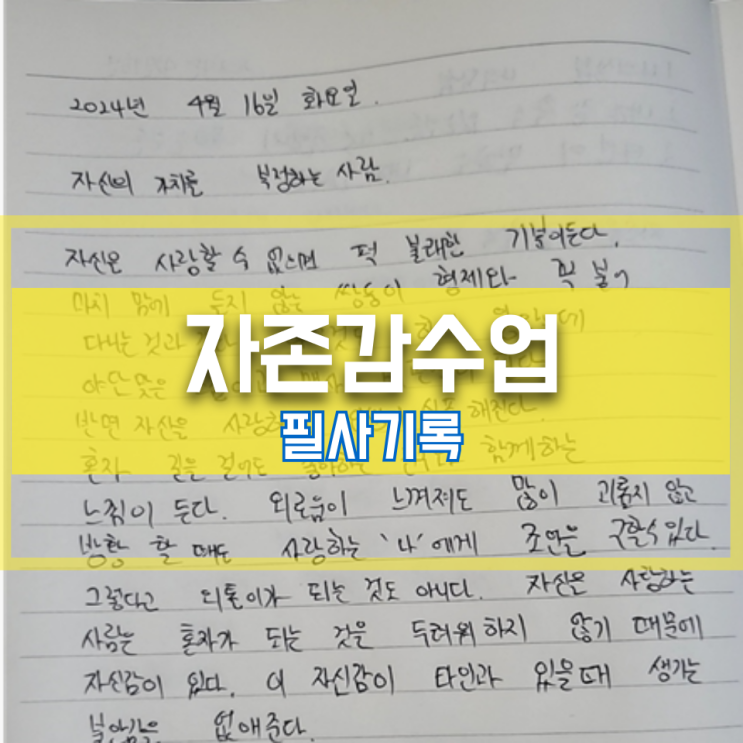 2024년 4월 16일 화요일.
자신의 가치를 부정하는 사람.
자신은 사랑할 수 없으면 퍽 불쾌한 기분이든다.
마치 맘에 들지 않는 쌍둥이 형제와 꼭 붙어
다니는 것과
자존감수업
야단맞은
반면 자신을 해진다.
필사기록
혼자 길을 걸어도 함께하는
느낌이 든다. 외로움이 느껴져도 많이 괴롭지 않고
방황 할 때도 사랑하는 '나'에게 조언을 구할수있다.
그렇다고 외톨이가 되는 것도 아니다. 자신은 사랑하는
사람은 혼자가 되는 것을 두려워하지 않기 때문에
자신감이 있다. 이 자신감이 타인과 있을때 생기는
불안감은 없애준다.